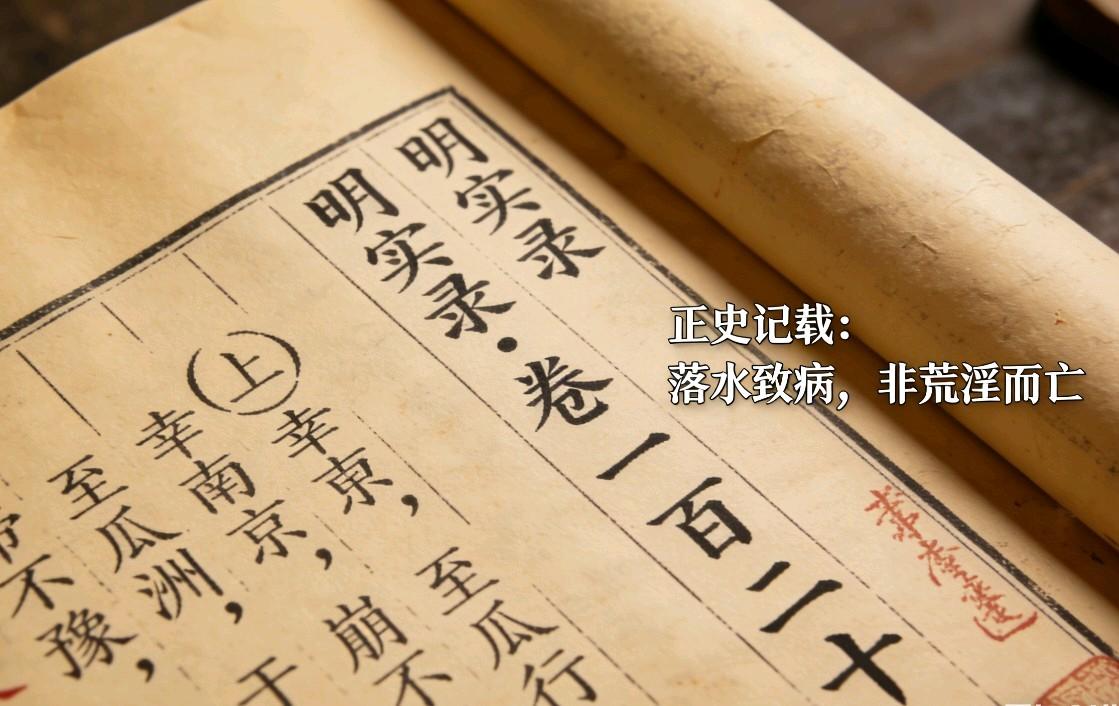 明实录
明实录·卷一百二十
幸東，至瓜行
幸南京，崩不
上
幸南京，
至瓜洲，于
不豫，
正史记载：
落水致病，非荒淫而亡